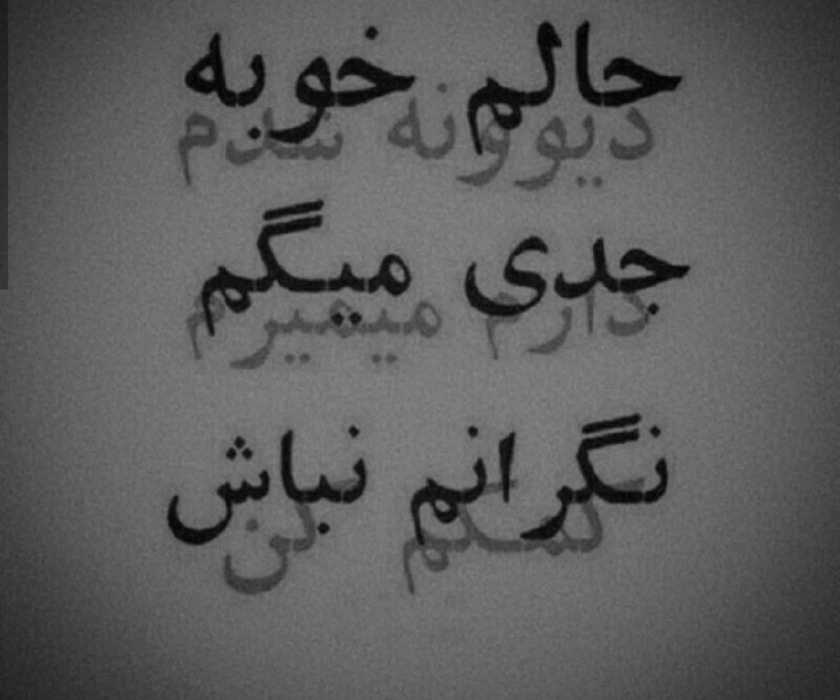 حالم خوبه
دیوونه شدم
جدی میگم
دارم میمیرم
نگرانم نباش
کمکم کن